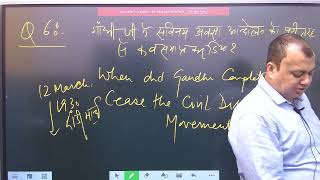 Q 60.
गाँधी जी ने सविनय अवज्ञा आन्दोलन को पूरी तरह
से कब समाप्त कर दिया?
12 March, When did Gandhi Completely
1930 Cease the Civil Dis
Movement